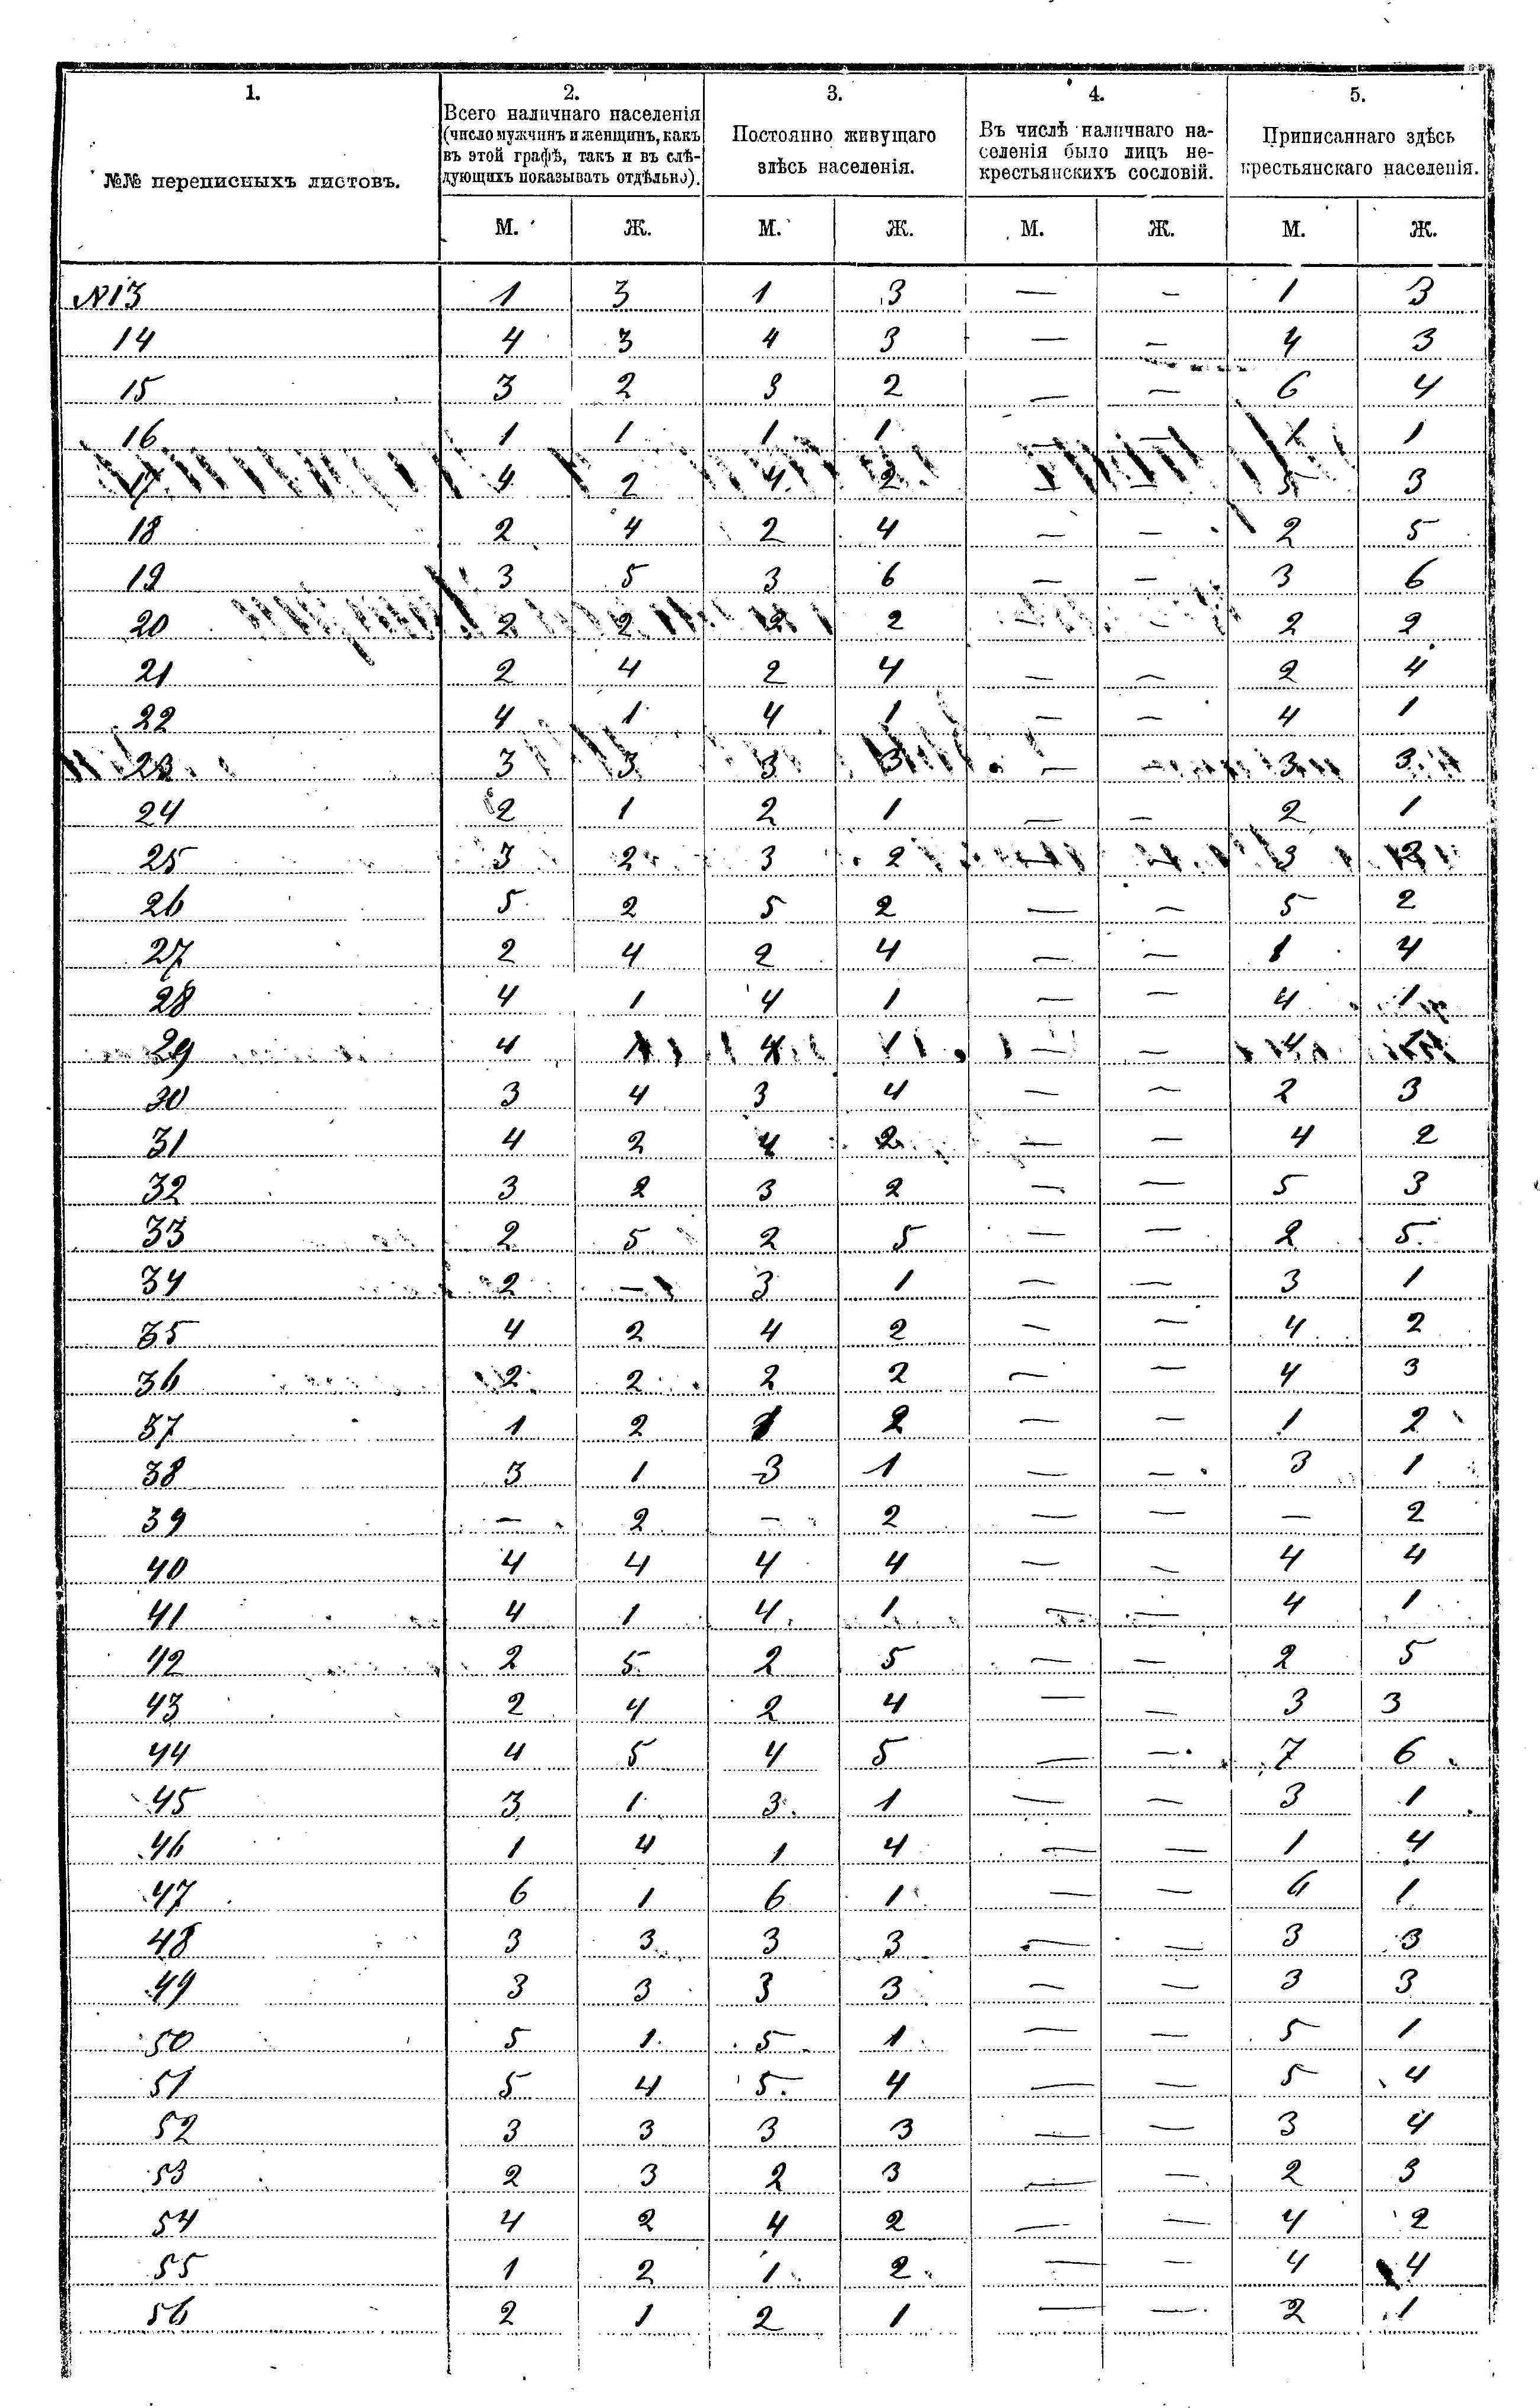 1. 2. 3. 4. 5.
№№ переписныхъ листовъ.
Всего наличнаго населенія
(число мужчинъ и женщинъ, какъ
въ этой графѣ, такъ и въ слѣ-
дующихъ показывать отдѣльно).
Постоянно живущаго
здѣсь населенія.
Въ числѣ наличнаго на-
селенія было лицъ не-
крестьянскихъ сословій.
Приписаннаго здѣсь
крестьянскаго населенія.
М. Ж. М. Ж. М. Ж. М. Ж.
№13 1 3 1 3 — — 1 3
14 4 3 4 3 — — 4 3
15 3 2 3 2 — — 6 4
16 1 1 1 1 — — 1 1
4 2 4 2 — — 3
18 2 4 2 4 — — 2 5
19 3 5 3 6 — — 3 6
20 2 2 2 2 — — 2 2
21 2 4 2 4 — — 2 4
22 4 1 4 1 — — 4 1
23 3 3 3 3 — — 3 3
24 2 1 2 1 — — 2 1
25 3 2 3 2 — — 3
26 5 2 5 2 — — 5 2
27 2 4 2 4 — — 1 4
28 4 1 4 1 — — 4 1
29 4 1 4 1 — — 4
30 3 4 3 4 — — 2 3
31 4 2 4 2 — — 4 2
32 3 2 3 2 — — 5 3
33 2 5 2 5 — — 2 5
34 2 — 3 1 — — 3 1
35 4 2 4 2 — — 4 2
36 2 2 2 2 — — 4 3
37 1 2 1 2 — — 1 2
38 3 1 3 1 — — 3 1
39 — 2 — 2 — — — 2
40 4 4 4 4 — — 4 4
41 4 1 4 1 — — 4 1
42 2 5 2 5 — — 2 5
43 2 4 2 4 — — 3 3
44 4 5 4 5 — — 7 6
45 3 1 3 1 — — 3 1
46 1 4 1 4 — — 1 4
47 6 1 6 1 — — 6 1
48 3 3 3 3 — — 3 3
49 3 3 3 3 — — 3 3
50 5 1 5 1 — — 5 1
51 5 4 5 4 — — 5 4
52 3 3 3 3 — — 3 4
53 2 3 2 3 — — 2 3
54 4 2 4 2 — — 4 2
55 1 2 1 2 — — 4 4
56 2 1 2 1 — — 2 1